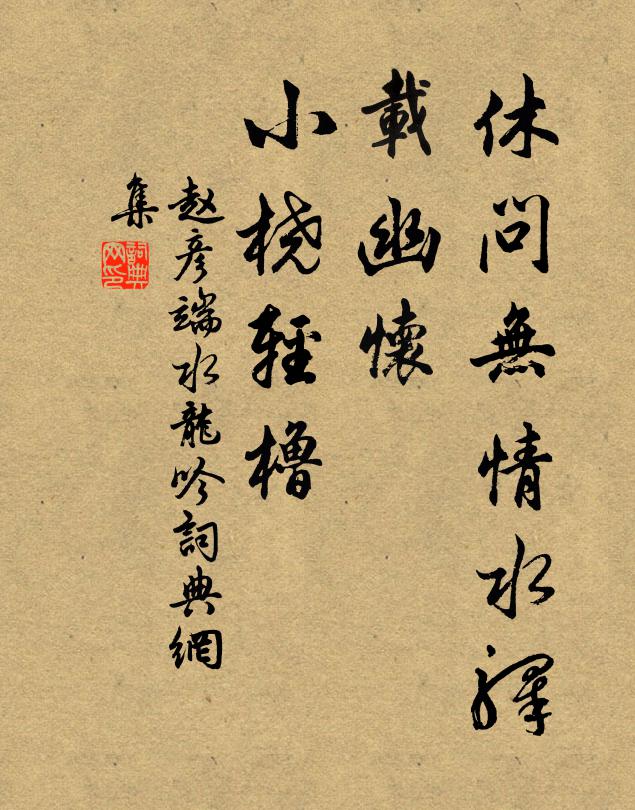 休问無情水驛
載幽懷
小桡輕櫓
赵彦端水龍吟詞典網
集
詞典
网印